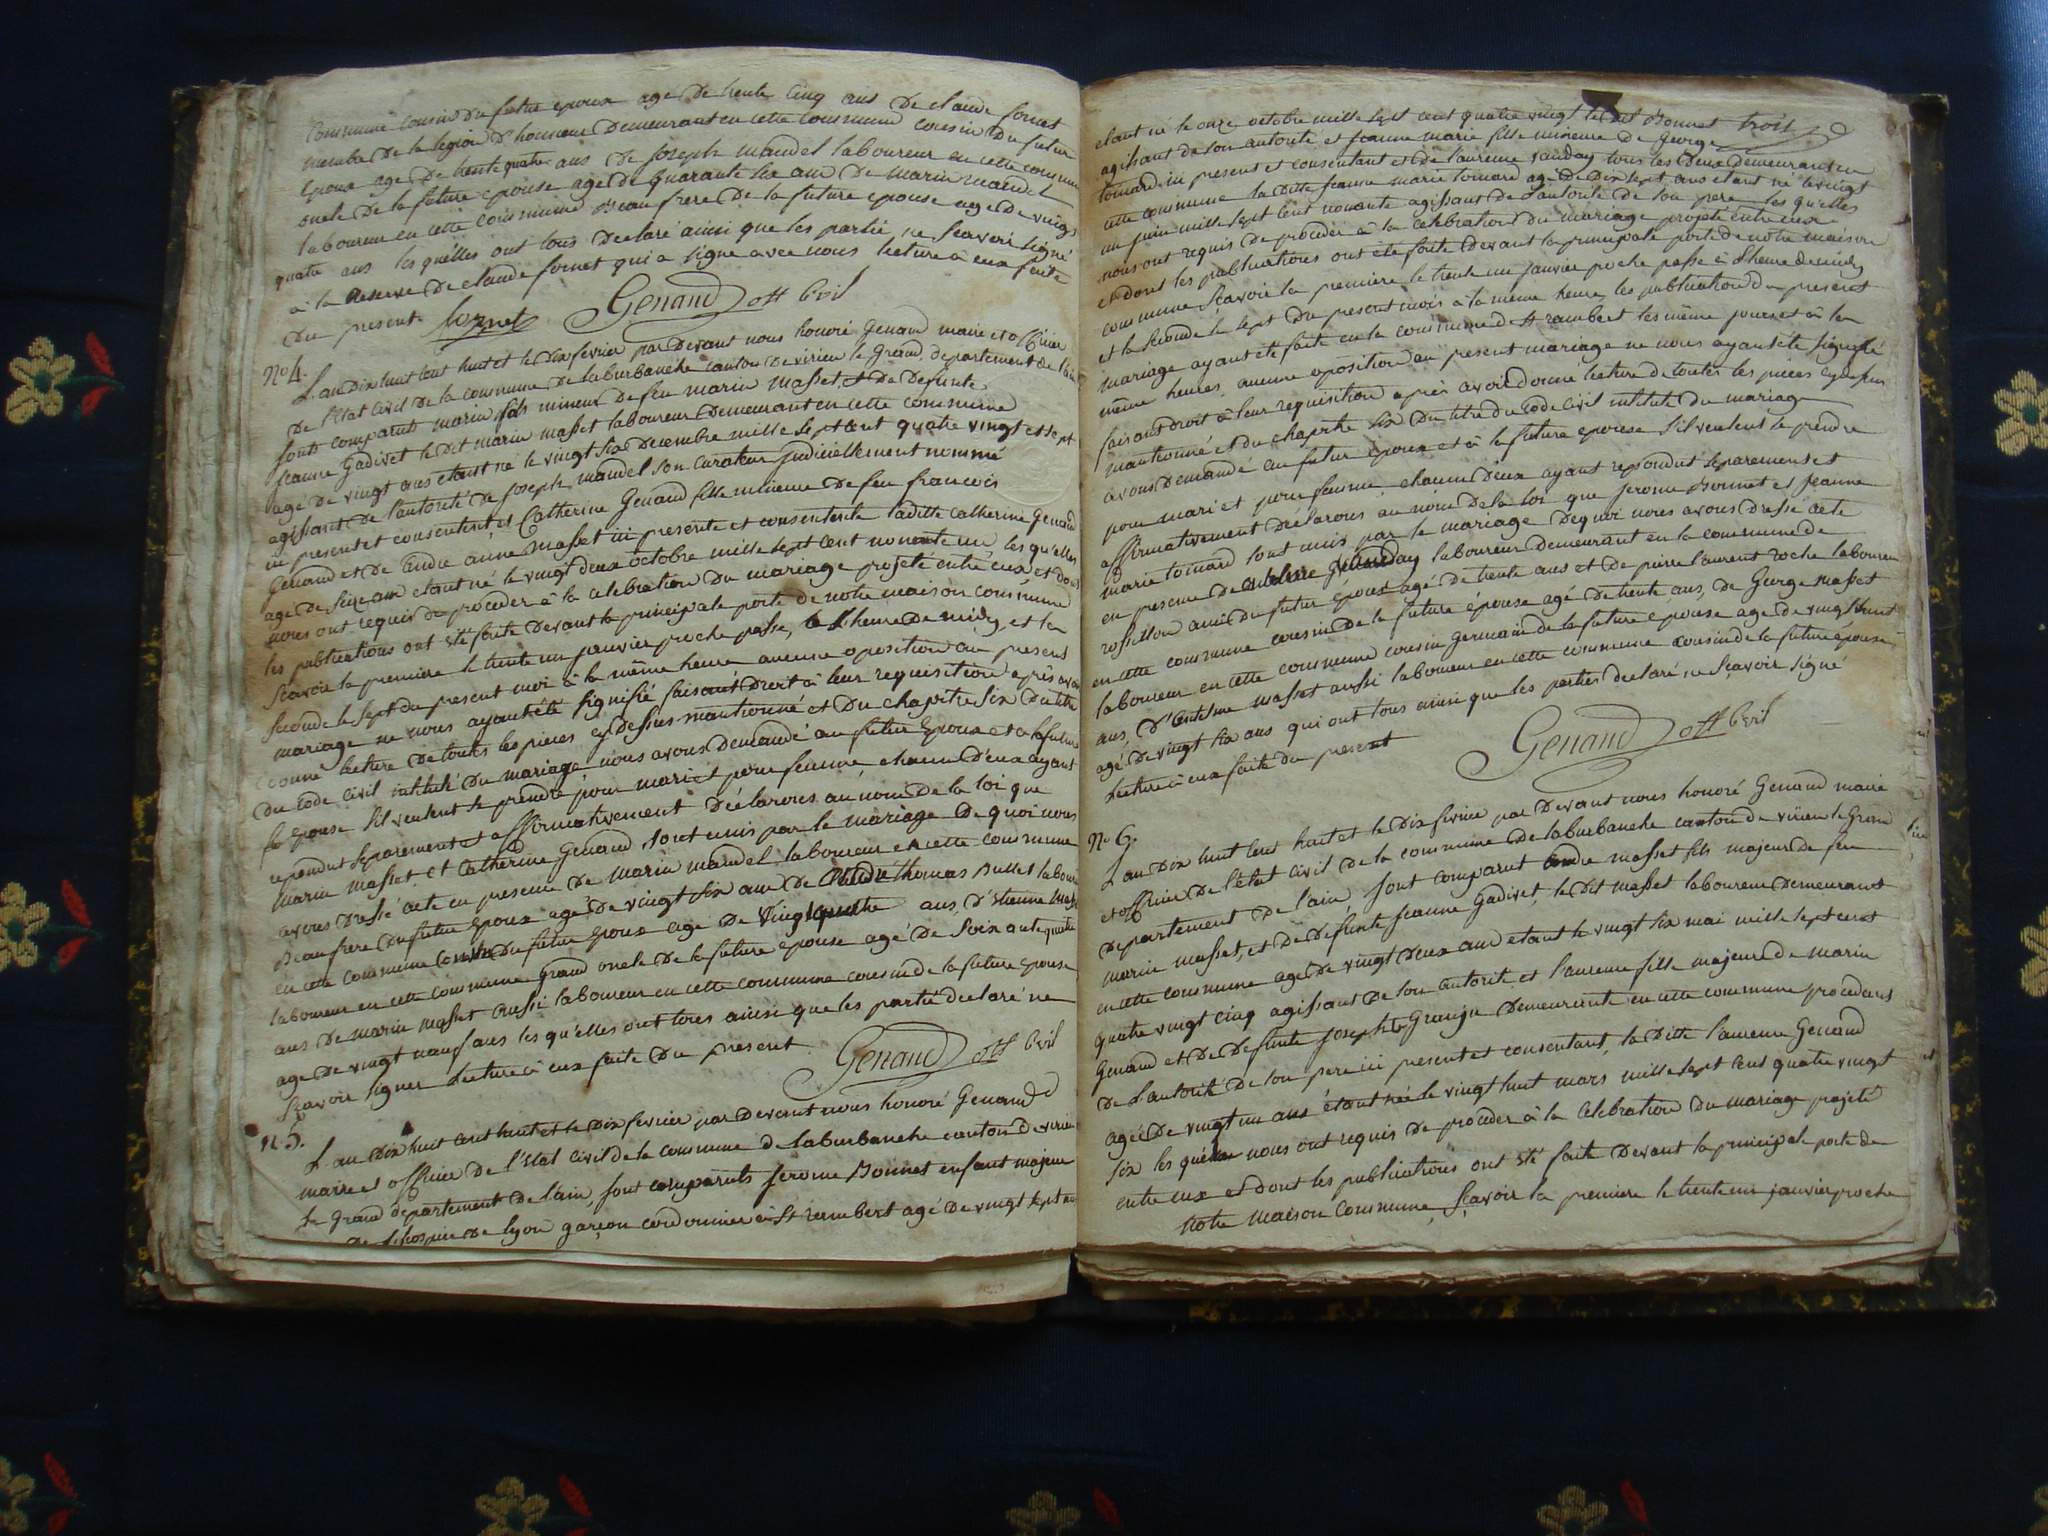 Commune cousin du futur epoux age de trente cinq ans de claude fornet
membre de la legion d'honneur demeurant en cette commune cousin du futur
Epoux age de trente quatre ans de Joseph mandel laboureur en cette commune
oncle de la future epouse age de quarante six ans de marin mandel
laboureur en cette commune Beau frere de la future epouse age de vingt
quatre ans les quélles ont tous declaré ainsi que les partie ne scavoir signé
a la Reserve de claude fornet qui a signé avec nous lecture a eux faite
du present fornet Genand off Civil
No 4.
L'an dix huit cent huit et le dix fevrier par devant nous honoré Genand maire et officier
de l'Etat Civil de la commune de laburbanche canton de virieu le grand, departement de l'ain
sont comparuts marin fils mineur de feu marin masset, et de defunte
jeanne Gadivet le dit marin masset laboureur demeurant en cette commune
agé de vingt ans etant né le vingt six decembre mille sept cent quatre vingt et sept
agissant de l'autorité de Joseph mandel son curateur judiciellement nommé
ici present et consentent, et Catherine Genand fille mineure de feu francois
Genand et de Andre anne masset ici presente et consentente laditte Catherine Genand
age de seize ans etant né le vingt deux octobre mille sept cent nonante un les qu'elles
nous ont requis de proceder à la celebration du mariage projeté entre eux et dont
les publications ont été faite devant la principale porte de notre maison commune
scavoir la premiere le trente un janvier proche passe, a l'heure de midy, et la
seconde le sept du present moi à la même heure aucune oposition au present
mariage ne nous ayant été signifié faisant droit à leur requisition après avoir
donné lecture de toutes les pieces cy dessus mantionné et du chapitre six du titre
du Code Civil intitulé du mariage nous avons demandé au futur Epoux et a la future
Epouse s'il veulent se prendre pour mari et pour femme chacun d'eux ayant
repondut separement et affirmativement déclarons au nom de la loi que
marin masset et Catherine Genand sont unis par le mariage de quoi nous
avons dressé acte en presence de marin mandel laboureur en cette commune
Beau frere du futur Epoux agé de vingt six ans de thomas Bullet laboureur
en cette commune cousin du futur Epoux age de vingt quatre ans, d'Etienne
laboureur en cette commune grand oncle de la future epouse agé de soix ante quatre
ans de marin masset aussi laboureur en cette commune cousin de la future Epouse
age de vingt neuf ans les qu'elles ont tous ainsi que les partie declaré ne
scavoir signer lecture à eux faite du present Genand off Civil
N 5.
L'an dix huit cent huit et le dix fevrier par devant nous honoré Genand
maire et officier de l'Etat civil de la commune de laburbanche canton de virieu
le grand departement de l'ain, sont comparuts Jerome Bonnet enfant majeur
de l'hospice de lyon garçon cordonnier à St rambert agé de vingt sept ans
etant né le onze octobre mille sept cent quatre vingt le dit Bonnet trois
agissant de son autorité et jeanne marie fille mineure de George
tornard ici present et consentant et de laurence tous les deux demeurants en
cette commune la ditte jeanne marie tornard agé de dix sept ans etant né le vingt
un juin mille sept cent nonante agissant de l'autorité de son pere les qu'elles
nous ont requis de proceder à la celebration du mariage projeté entre eux
et dont les publications ont été faite devant la principale porte de notre maison
commune Scavoir la premiere le trente un janvier proche passe à l'heure de midy
et la seconde le sept du present mois a la même heure, les publication du present
mariage ayant été faite en la commune de St rambert les même jours et à la
même heures, aucune oposition au present mariage ne nous ayant été signifié
faisant droit à leur requisition après avoir donné lecture de toutes les pieces cy dessus
mantionné et du chapitre six du titre du Code Civil intitulé du mariage
avons demandé au futur Epoux et à la future epouse s'il veulent se prendre
pour mari et pour femme chacun d'eux ayant repondut separement et
affirmativement déclarons au nom de la loi que jerome Bonnet et jeanne
marie tornard sont unis par le mariage de quoi nous avons dressé acte
en presence de laboureur demeurant en la commune de
rossillon ami du futur époux agé de trente ans et de pierre laurent roche laboureur
en cette commune cousin de la future épouse agé de trente ans, de George masset
laboureur en cette commune cousin germain de la future epouse age de vingt huit
ans, d'antelme masset aussi laboureur en cette commune cousin de la future épouse
agé de vingt six ans qui ont tous ainsi que les parties declaré ne scavoir signé
Lecture à eux faite du present Genand off Civil
No 6.
L'an dix huit cent huit et le dix fevrier par devant nous honoré Genand maire
et officier de l'état civil de la commune de laburbanche canton de virieu le Grand
departement de l'ain, sont comparut andre masset fils majeur de feu
marin masset, et de deffunte jeanne Gadivet, le dit masset laboureur demeurant
en cette commune agé de vingt deux ans etant le vingt six mai mille sept cent
quatre vingt cinq agissant de son autorité et laurence fille majeur de marin
Genand et de deffunte josephte Grange demeurante en cette commune procedant
de l'autorité de son pere ici present et consentant, la ditte laurence Genand
agé de vingt un ans étant née le vingt huit mars mille sept cent quatre vingt
six les quélles nous ont requis de proceder à la celebration du mariage projeté
entre eux et dont les publications ont été faite devant la principale porte de
notre maison commune, sçavoir la premiere le trente un janvier proche